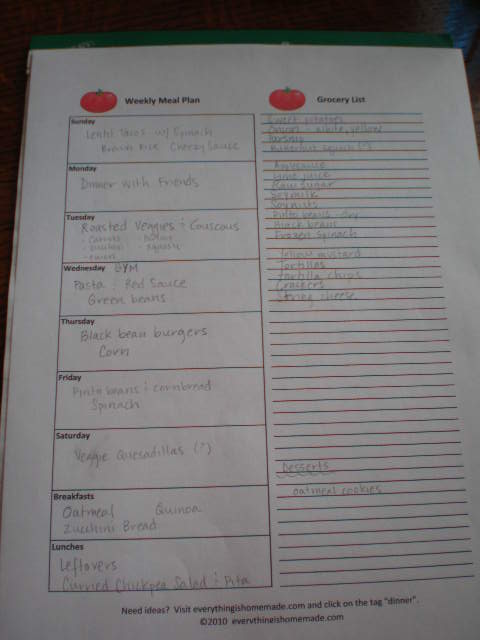 Weekly Meal Plan
Sunday
Lentil Tacos w/ Spinach
Brown Rice Cheezy Sauce
Monday
Dinner with Friends
Tuesday
Roasted Veggies & Couscous
- carrots - potato
- zucchini - squash
- onion
Wednesday GYM
Pasta & Red Sauce
Green beans
Thursday
Black bean burgers
Corn
Friday
Pinto beans & cornbread
Spinach
Saturday
Veggie Quesadillas (?)
Breakfasts
Oatmeal Quinoa
Zucchini Bread
Lunches
Leftovers
Curried Chickpea Salad & Pita
Grocery List
Sweet potatoes
Onions - white, yellow
Parsnip
Butternut squash (?)
Applesauce
Lime juice
Raw sugar
Soymilk
Soynuts
Pinto beans - dry
Black beans
Frozen spinach
Yellow mustard
Tortillas
Tortilla chips
Crackers
String cheese
Desserts
oatmeal cookies
Need ideas? Visit everythingishomemade.com and click on the tag "dinner".
©2010 everythingishomemade.com